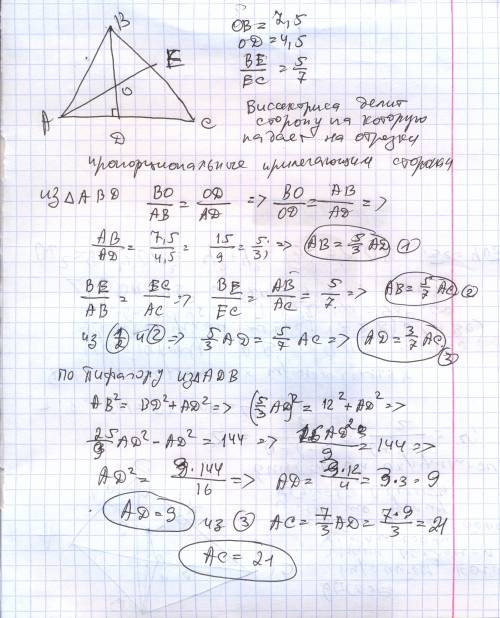 B
E
O
A
D
C
OB = 7,5
OD = 4,5
BE/EC = 5/7
Биссектриса делит
сторону на которую
падает на отрезки
пропорциональные прилегающим сторонам
из △ABD BO/AB = OD/AD => BO/OD = AB/AD =>
AB/AD = 7,5/4,5 = 15/9 = 5/3) => AB = 5/3 AD ①
BE/AB = EC/AC => BE/EC = AB/AC = 5/7 => AB = 5/7 AC ②
из ① и ② => 5/3 AD = 5/7 AC => AD = 3/7 AC ③
по Пифагору из △ADB
AB² = BD² + AD² => (5/3 AD)² = 12² + AD² =>
25/9 AD² - AD² = 144 => 16AD²/9 = 144 =>
AD² = 9·144/16 => AD = 3·12/4 = 3·3 = 9
AD = 9 из ③ AC = 7/3 AD = 7·9/3 = 21
AC = 21